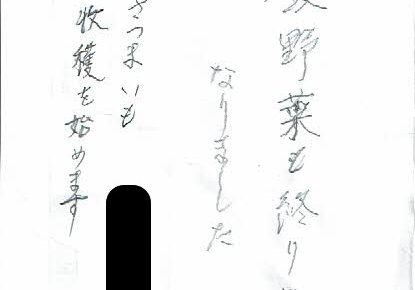 野菜も終り
なりました
さつまいも
収穫を始めます